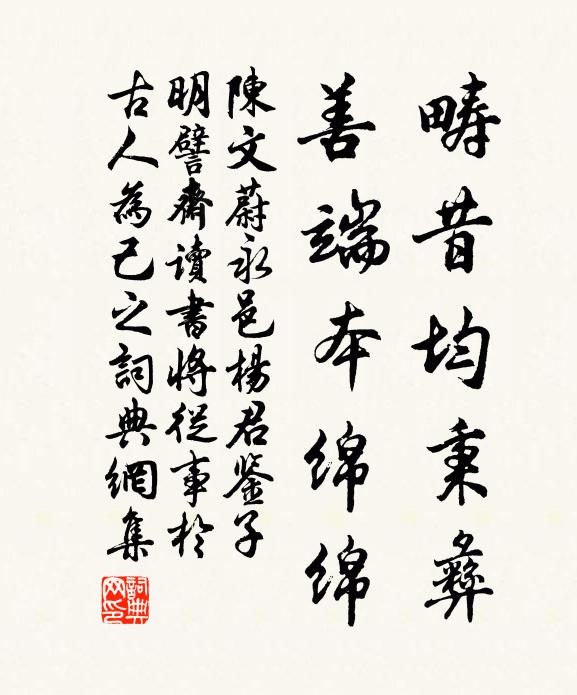 畴昔均秉彝
善端本绵绵
陳文蔚永邑楊君鉴子
明譬齋讀書將從事於
古人為己之詞典網集
詞典网印